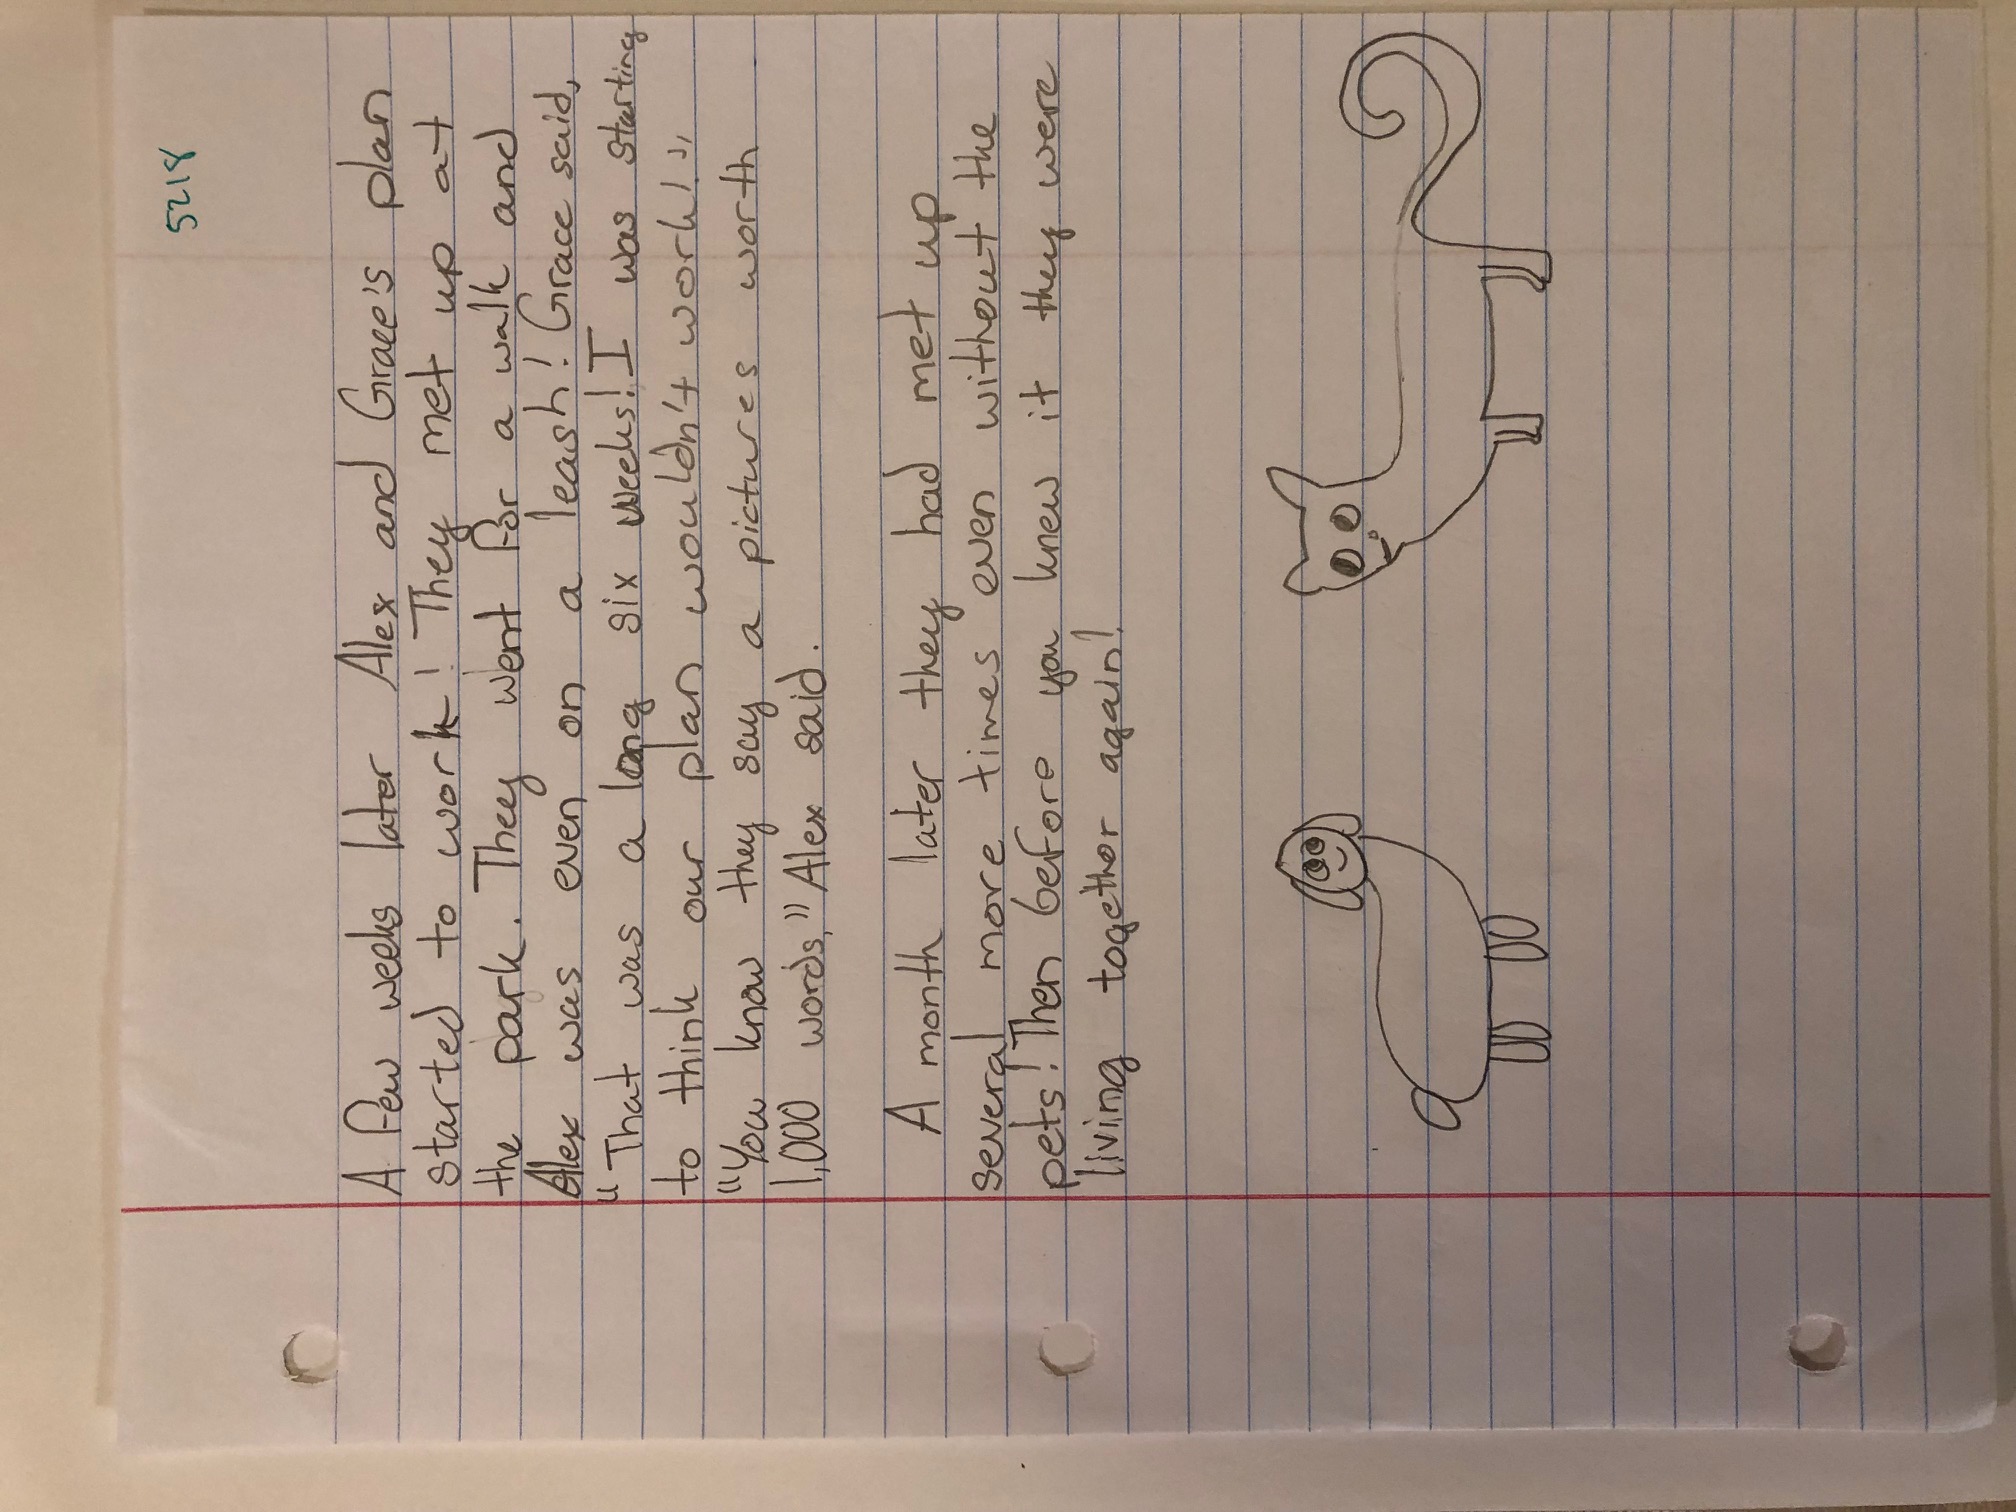 5218
A few weeks later Alex and Grace's plan
started to work! They met up at
the park. They went for a walk and
Alex was even on a leash! Grace said,
"That was a long six weeks! I was starting
to think our plan wouldn't work!"
"You know they say a pictures worth
1,000 words," Alex said.
A month later they had met up
several more times even without the
pets! Then before you knew it they were
living together again!